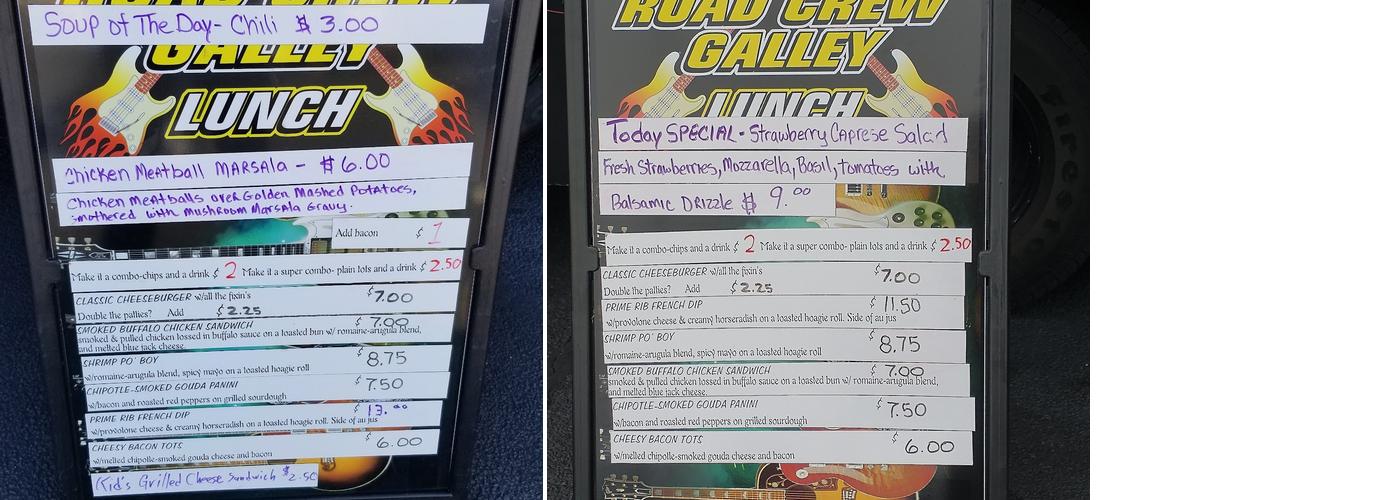 ROAD CREW
Soup of The Day- Chili $ 3.00
GALLEY
LUNCH
Chicken Meatball MARSALA - $6.00
Chicken Meatballs over Golden Mashed Potatoes,
smothered with Mushroom Marsala Gravy.
Add bacon $ 1
Make it a combo-chips and a drink $ 2 Make it a super combo- plain tots and a drink $ 2.50
CLASSIC CHEESEBURGER w/all the fixin's $7.00
Double the patties? Add $2.25
SMOKED BUFFALO CHICKEN SANDWICH $ 7.00
smoked & pulled chicken tossed in buffalo sauce on a toasted bun w/ romaine-arugula blend,
and melted blue jack cheese.
SHRIMP PO' BOY $ 8.75
w/romaine-arugula blend, spicy mayo on a toasted hoagie roll
CHIPOTLE-SMOKED GOUDA PANINI $ 7.50
w/bacon and roasted red peppers on grilled sourdough
PRIME RIB FRENCH DIP $ 13.00
w/provolone cheese & creamy horseradish on a toasted hoagie roll. Side of au jus
CHEESY BACON TOTS $ 6.00
w/melted chipotle-smoked gouda cheese and bacon
Kid's Grilled Cheese Sandwich $2.50
ROAD CREW
GALLEY
LUNCH
Today SPECIAL - Strawberry Caprese Salad
Fresh Strawberries, Mozzarella, Basil, tomatoes with
Balsamic DRIZZLE $ 9.00
Make it a combo-chips and a drink $ 2 Make it a super combo- plain tots and a drink $ 2.50
CLASSIC CHEESEBURGER w/all the fixin's $7.00
Double the patties? Add $2.25
PRIME RIB FRENCH DIP $ 11.50
w/provolone cheese & creamy horseradish on a toasted hoagie roll. Side of au jus
SHRIMP PO' BOY $ 8.75
w/romaine-arugula blend, spicy mayo on a toasted hoagie roll
SMOKED BUFFALO CHICKEN SANDWICH $ 7.00
smoked & pulled chicken tossed in buffalo sauce on a toasted bun w/ romaine-arugula blend,
and melted blue jack cheese.
CHIPOTLE-SMOKED GOUDA PANINI $ 7.50
w/bacon and roasted red peppers on grilled sourdough
CHEESY BACON TOTS $ 6.00
w/melted chipotle-smoked gouda cheese and bacon